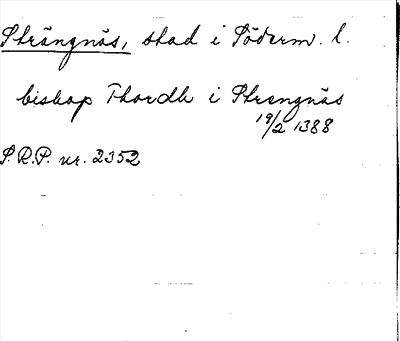 Strängnäs, stad i Söderm. l.
biskop Thordh i Strengnäs
19/2 1388
S.R.P. nr. 2352